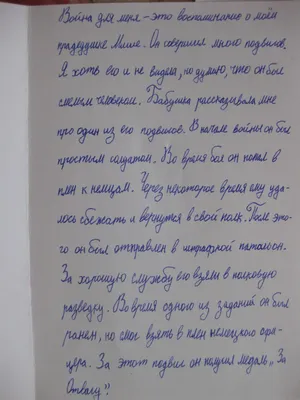 Война для меня – это воспоминание о моём
прадедушке Мише. Он совершил много подвигов.
Я хоть его и не видела, но думаю, что он был
смелым человеком. Бабушка рассказывала мне
про один из его подвигов. В начале войны он был
простым солдатом. Во время боя он попал в
плен к немцам. Через некоторое время ему уда-
лось сбежать и вернутся в свой полк. После это-
го он был отправлен в штрафной батальон.
За хорошую службу его взяли в полковую
разведку. Во время одного из заданий он был
ранен, но смог взять в плен немецкого офи-
цера. За этот подвиг он получил медаль „За
Отвагу".